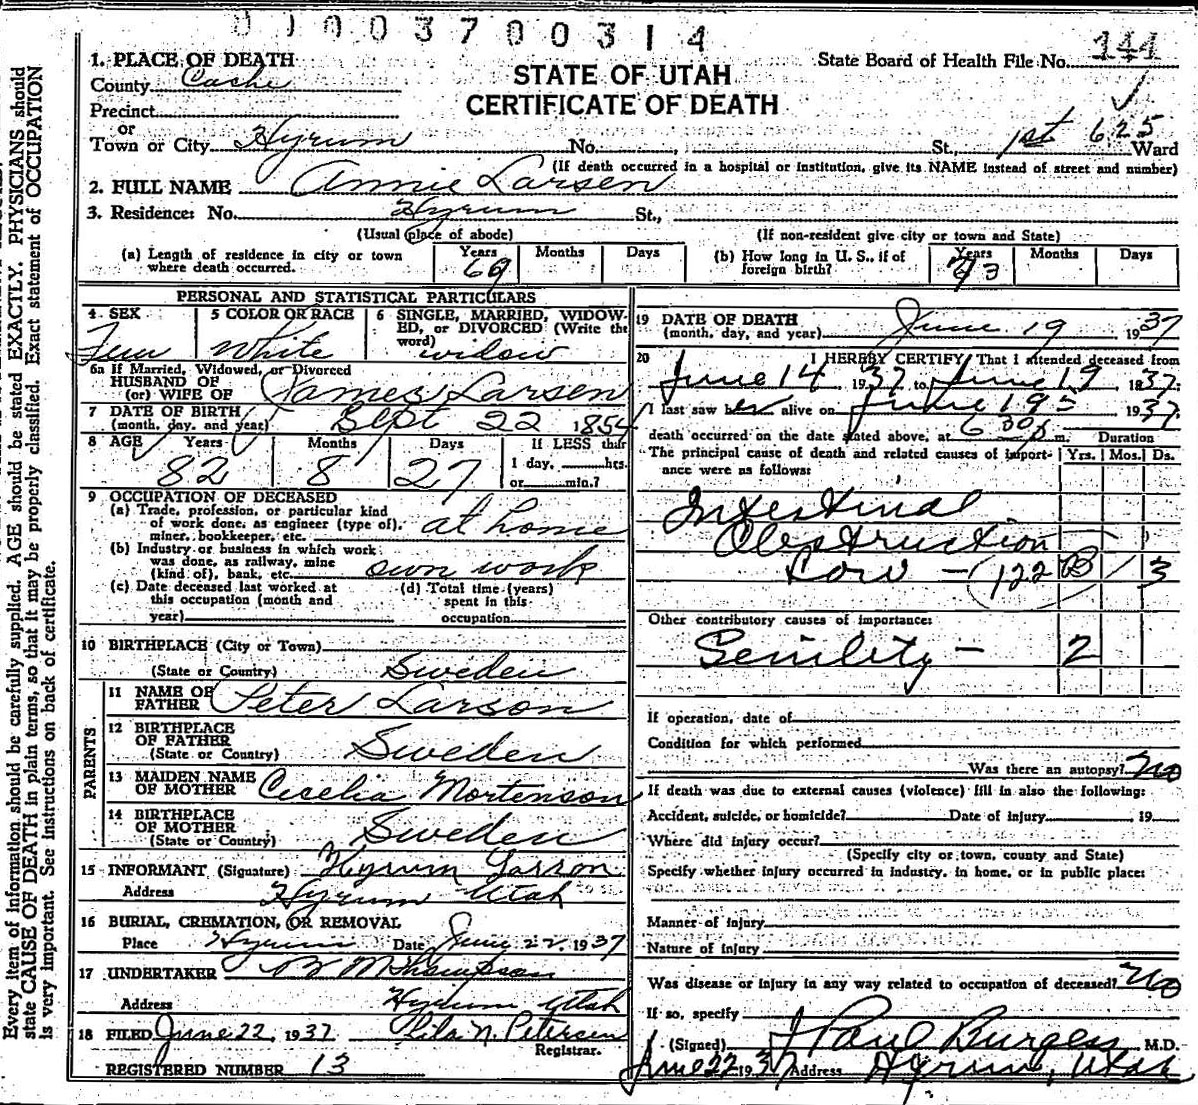 0 1 0 0 3 7 0 0 3 1 4
STATE OF UTAH
CERTIFICATE OF DEATH
State Board of Health File No. 144
1. PLACE OF DEATH
County Cache
Precinct
or
Town or City Hyrum No. , St., 1st 625 Ward
(If death occurred in a hospital or institution, give its NAME instead of street and number)
2. FULL NAME Annie Larsen
3. Residence: No. Hyrum St.,
(Usual place of abode) (If non-resident give city or town and State)
(a) Length of residence in city or town where death occurred. Years 69 Months Days
(b) How long in U. S., if of foreign birth? Years 73 Months Days
PERSONAL AND STATISTICAL PARTICULARS
4 SEX Fem
5 COLOR OR RACE White
6 SINGLE, MARRIED, WIDOWED, or DIVORCED (Write the word) widow
6a If Married, Widowed, or Divorced
HUSBAND OF
(or) WIFE OF James Larsen
7 DATE OF BIRTH
(month, day, and year) Sept 22 1854
8 AGE Years 82 Months 8 Days 27 If LESS than 1 day, hrs. or min.?
9 OCCUPATION OF DECEASED
(a) Trade, profession, or particular kind
of work done, as engineer (type of),
miner, bookkeeper, etc. at home
(b) Industry or business in which work
was done, as railway, mine
(kind of), bank, etc. own work
(c) Date deceased last worked at
this occupation (month and
year)
(d) Total time (years)
spent in this
occupation
10 BIRTHPLACE (City or Town)
(State or Country) Sweden
PARENTS
11 NAME OF
FATHER Peter Larson
12 BIRTHPLACE
OF FATHER
(State or Country) Sweden
13 MAIDEN NAME
OF MOTHER Cecelia Mortenson
14 BIRTHPLACE
OF MOTHER
(State or Country) Sweden
15 INFORMANT (Signature) Hyrum Larson
Address Hyrum Utah
16 BURIAL, CREMATION, OR REMOVAL
Place Hyrum Date June 22 1937
17 UNDERTAKER
Address Hyrum Utah
18 FILED June 22, 1937 Lila N. Petersen
Registrar.
REGISTERED NUMBER 13
19 DATE OF DEATH
(month, day, and year) June 19 1937
20 I HEREBY CERTIFY, That I attended deceased from
June 14 1937 to June 19 1937.
I last saw her alive on June 19 1937.
death occurred on the date stated above, at 6 30 p m. Duration
The principal cause of death and related causes of importance were as follows: Yrs. Mos. Ds.
Intestinal
Obstruction
Low - (122 B) 3
Other contributory causes of importance:
Senility - 2
If operation, date of
Condition for which performed
Was there an autopsy? No
If death was due to external causes (violence) fill in also the following:
Accident, suicide, or homicide? Date of injury 19
Where did injury occur?
(Specify city or town, county and State)
Specify whether injury occurred in industry, in home, or in public place:
Manner of injury
Nature of injury
Was disease or injury in any way related to occupation of deceased? No
If so, specify
(Signed) J Paul Burgess M.D.
June 22 1937 Address Hyrum, Utah
Every item of information should be carefully supplied. AGE should be stated EXACTLY. PHYSICIANS should
state CAUSE OF DEATH in plain terms, so that it may be properly classified. Exact statement of OCCUPATION
is very important. See instructions on back of certificate.